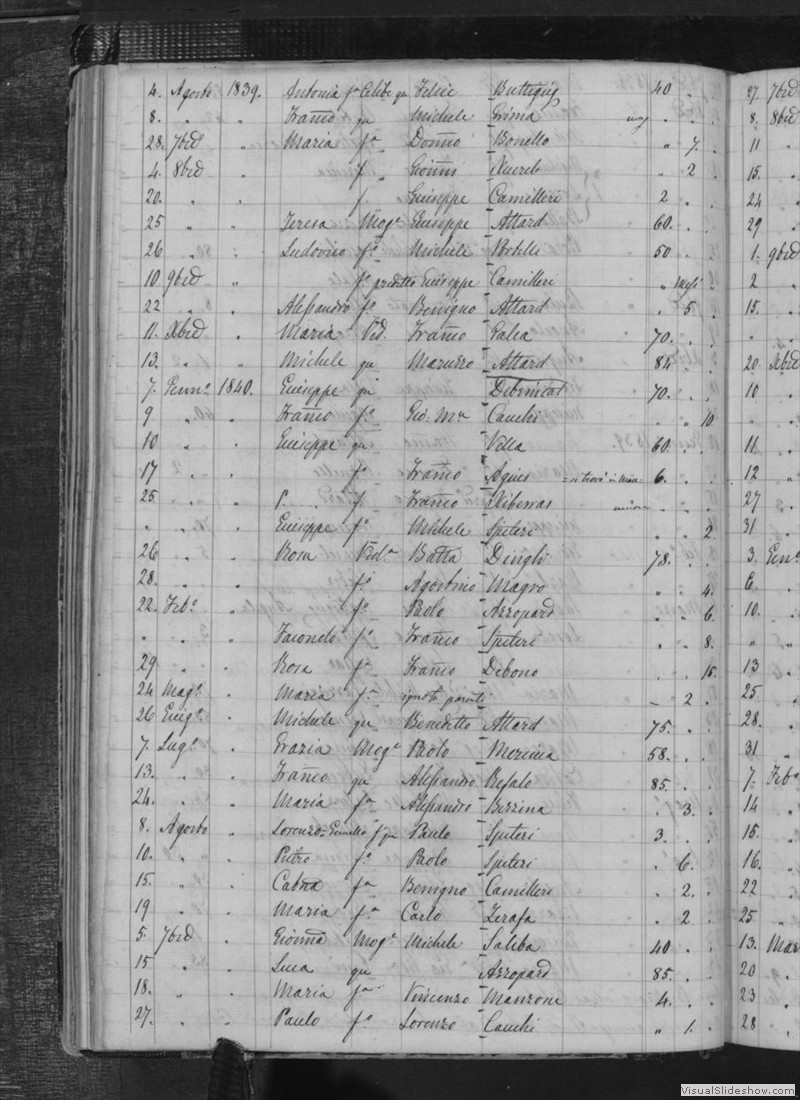 4. Agosto 1839. Antonia fa Celibe qu Felice Buttigieg 40
8. " " Franco qu Michele Grima mag
28. 7bre " Maria fa Donno Bonello " 7.
4. 8bre f Gionni Xuereb " 2
20. " " f Giuseppe Camilleri 2
25 " " Teresa Moge Giuseppe Attard 60.
26 " " Ludovico fo Michele Portelli 50
10 9bre " fo predetto Giuseppe Camilleri " mesi
22 " Alessandro fo Benigno Attard " 5
11. Xbre " Maria Ved. Franco Galea 70.
13. " " Michele qu Maruzzo Attard 84
7. Genno. 1840. Giuseppe qu 70.
9 " " Franco fo Gio: Ma Cauchi " " 10.
10 " " Giuseppe qu Vella 60.
17 " " fo Franco Agius 6.
25. " f Franco
" " " Giuseppe fo Michele Spiteri " " 2.
26 " " Rosa Veda Batta Dingli 78.
28. " " fo Agostino Magro " " 4.
22. Febo " fo Paolo Azzopard " " 6.
" " " fo Franco Spiteri " " 8.
29 " " Rosa fa Franco Debono " " 15.
24 Mago " Maria fa ignoti parenti 2
26 Giugo " Michele qu Benedetto Attard 75.
7. Lugo " Grazia Moge Paolo Mercieca 58.
13. " " Franco qu Alessandro Refalo 85.
24. " " Maria fa Alessandro Bezzina " 3.
8. Agosto " Lorenzo= Paulo Spiteri 3.
10. " " Pietro fo Paolo Spiteri " 6.
15. " " fa Benigno Camilleri " 2.
19 " " Maria fa Carlo Zerafa " 2
5. 7bre " Gionna Moge Michele Saliba 40
15 " " Luca qu Azzopard 85.
18. " " Maria fa Vincenzo Manzone 4.
27. " " Paulo fo Lorenzo Cauchi " 1.
27. 7bre
8. 8bre
11
15.
24
29
1. 9bre
2
15.
20. Xbre
10
11.
12
27
31
3. Genno
6.
10.
" "
13
25
28.
31
7. Febo
14
15.
16.
22
25
13. Mar
20
23
28
VisualSlideshow.com